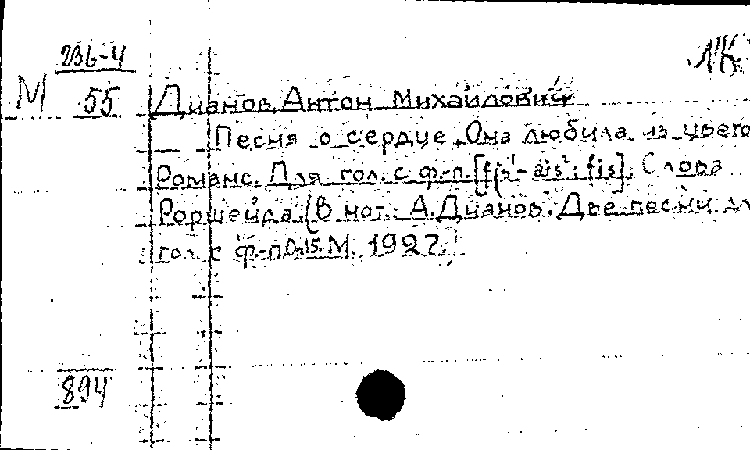 236-4
М 55 Дианов, Антон Михайлович
Песня о сердце "Она любила из цвето
Романс. Для гол. с ф-п. [fis¹-ais²; fis]. Слова
Роршейда. (В нот.: А. Дианов. Две песни дл
гол. с ф-п. М. 1927.
894